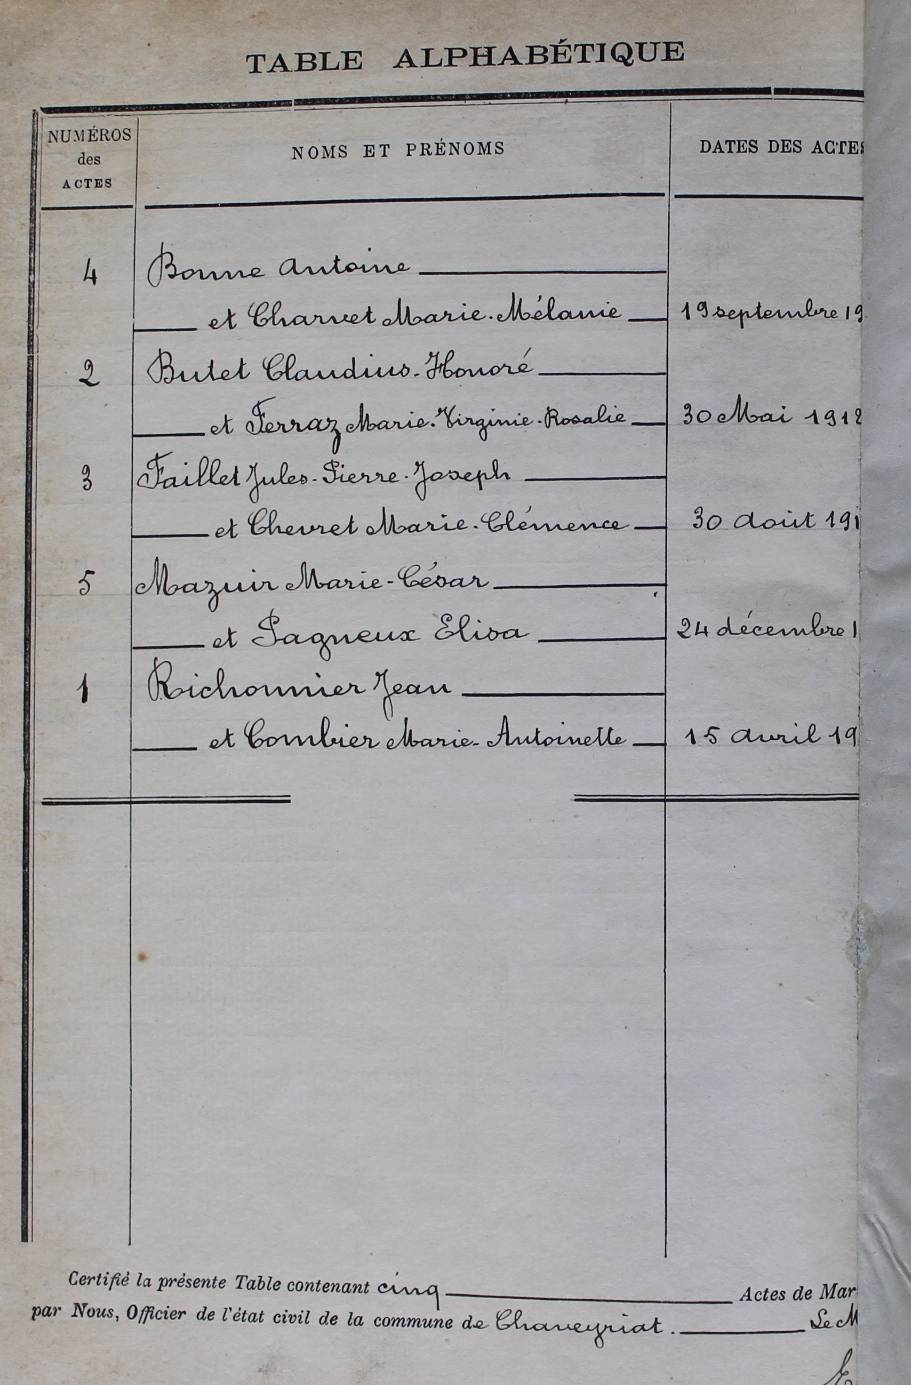 TABLE ALPHABÉTIQUE
NUMÉROS des ACTES
NOMS ET PRÉNOMS
DATES DES ACTES
4 Bonne Antoine
et Charvet Marie-Mélanie 19 septembre 19
2 Butet Claudius-Honoré
et Ferraz Marie-Virginie-Rosalie 30 Mai 1912
3 Faillet Jules-Pierre-Joseph
et Chevret Marie-Clémence 30 Août 191
5 Mazuir Marie-César
et Pagneux Elisa 24 décembre 1
1 Richonnier Jean
et Combier Marie-Antoinette 15 Avril 19
Certifié la présente Table contenant cinq Actes de Mar
par Nous, Officier de l'état civil de la commune de Chaveyriat. Le M